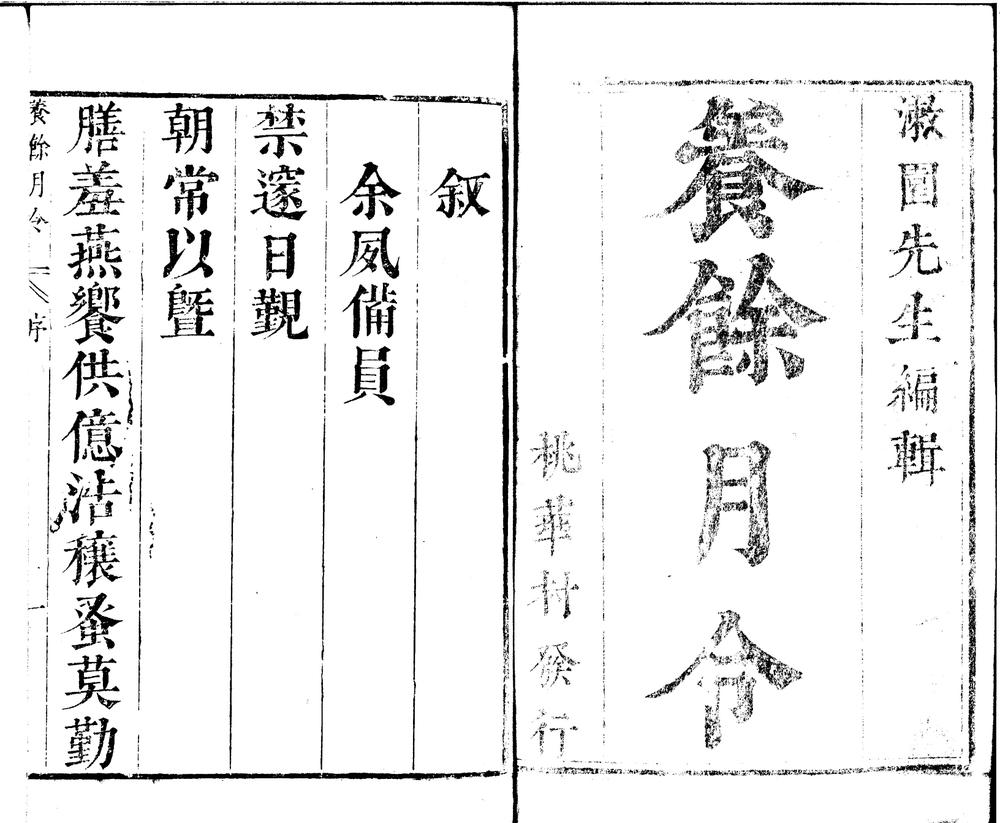 漱園先生編輯
養餘月令
桃華村發行
叙
余夙備員
禁邃日覲
朝常以曁
膳羞燕饗供億浩穰蚤莫勤
養餘月令
序
一